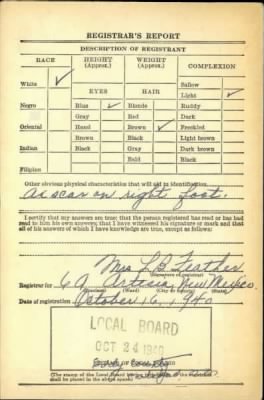 REGISTRAR'S REPORT
DESCRIPTION OF REGISTRANT
RACE HEIGHT (Approx.) WEIGHT (Approx.) COMPLEXION
White ✓ Sallow
EYES HAIR Light ✓
Negro Blue ✓ Blonde Ruddy
Gray Red Dark
Oriental Hazel Brown ✓ Freckled
Brown Black Light brown
Indian Black Gray Dark brown
Bald Black
Filipino
Other obvious physical characteristics that will aid in identification
A scar on right foot.
I certify that my answers are true; that the person registered has read or has had
read to him his own answers; that I have witnessed his signature or mark and that
all of his answers of which I have knowledge are true, except as follows:
Mrs L B Feather
(Signature of registrar)
Registrar for 6 A Artesia, New Mexico.
(Precinct) (Ward) (City or County) (State)
Date of registration October 16, 1940
LOCAL BOARD
OCT 24 1940
(The stamp of the Local Board
shall be placed in the above space.)